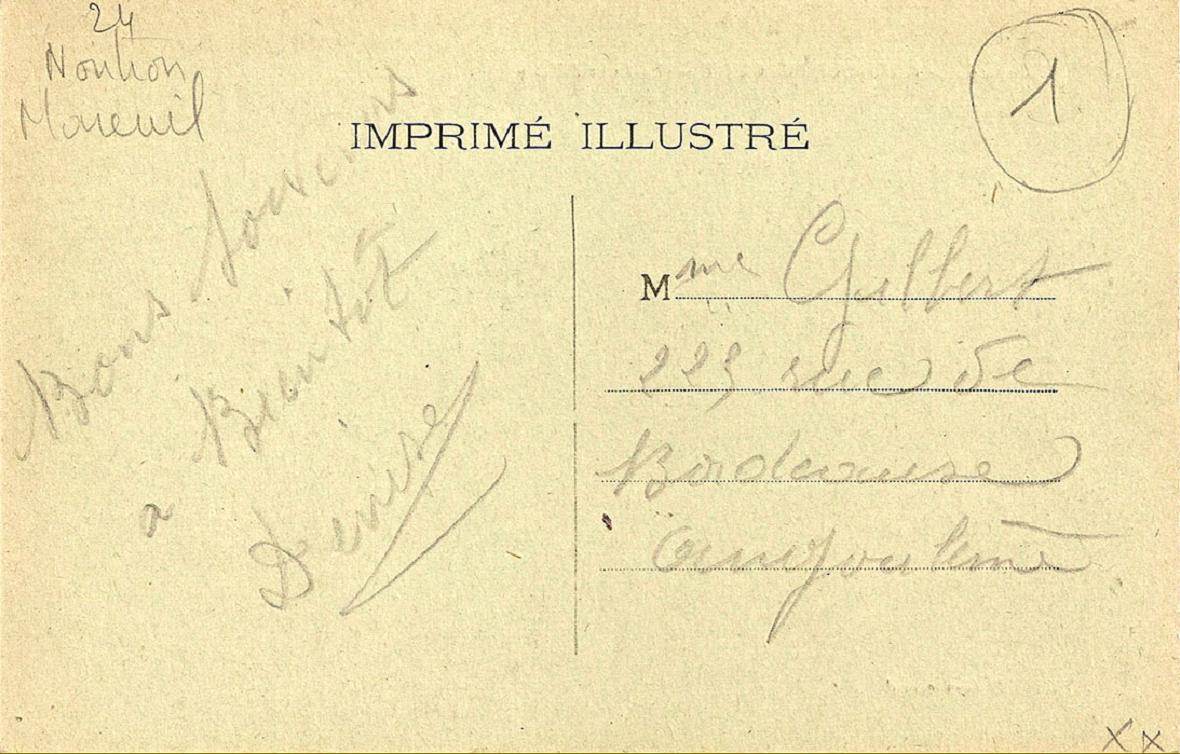 24
Nontron
Mareuil
1
IMPRIMÉ ILLUSTRÉ
Bons Souvenirs
a Bientôt
Denise
Mme Gilbert
223 rue de
Bordeause
Angoulême